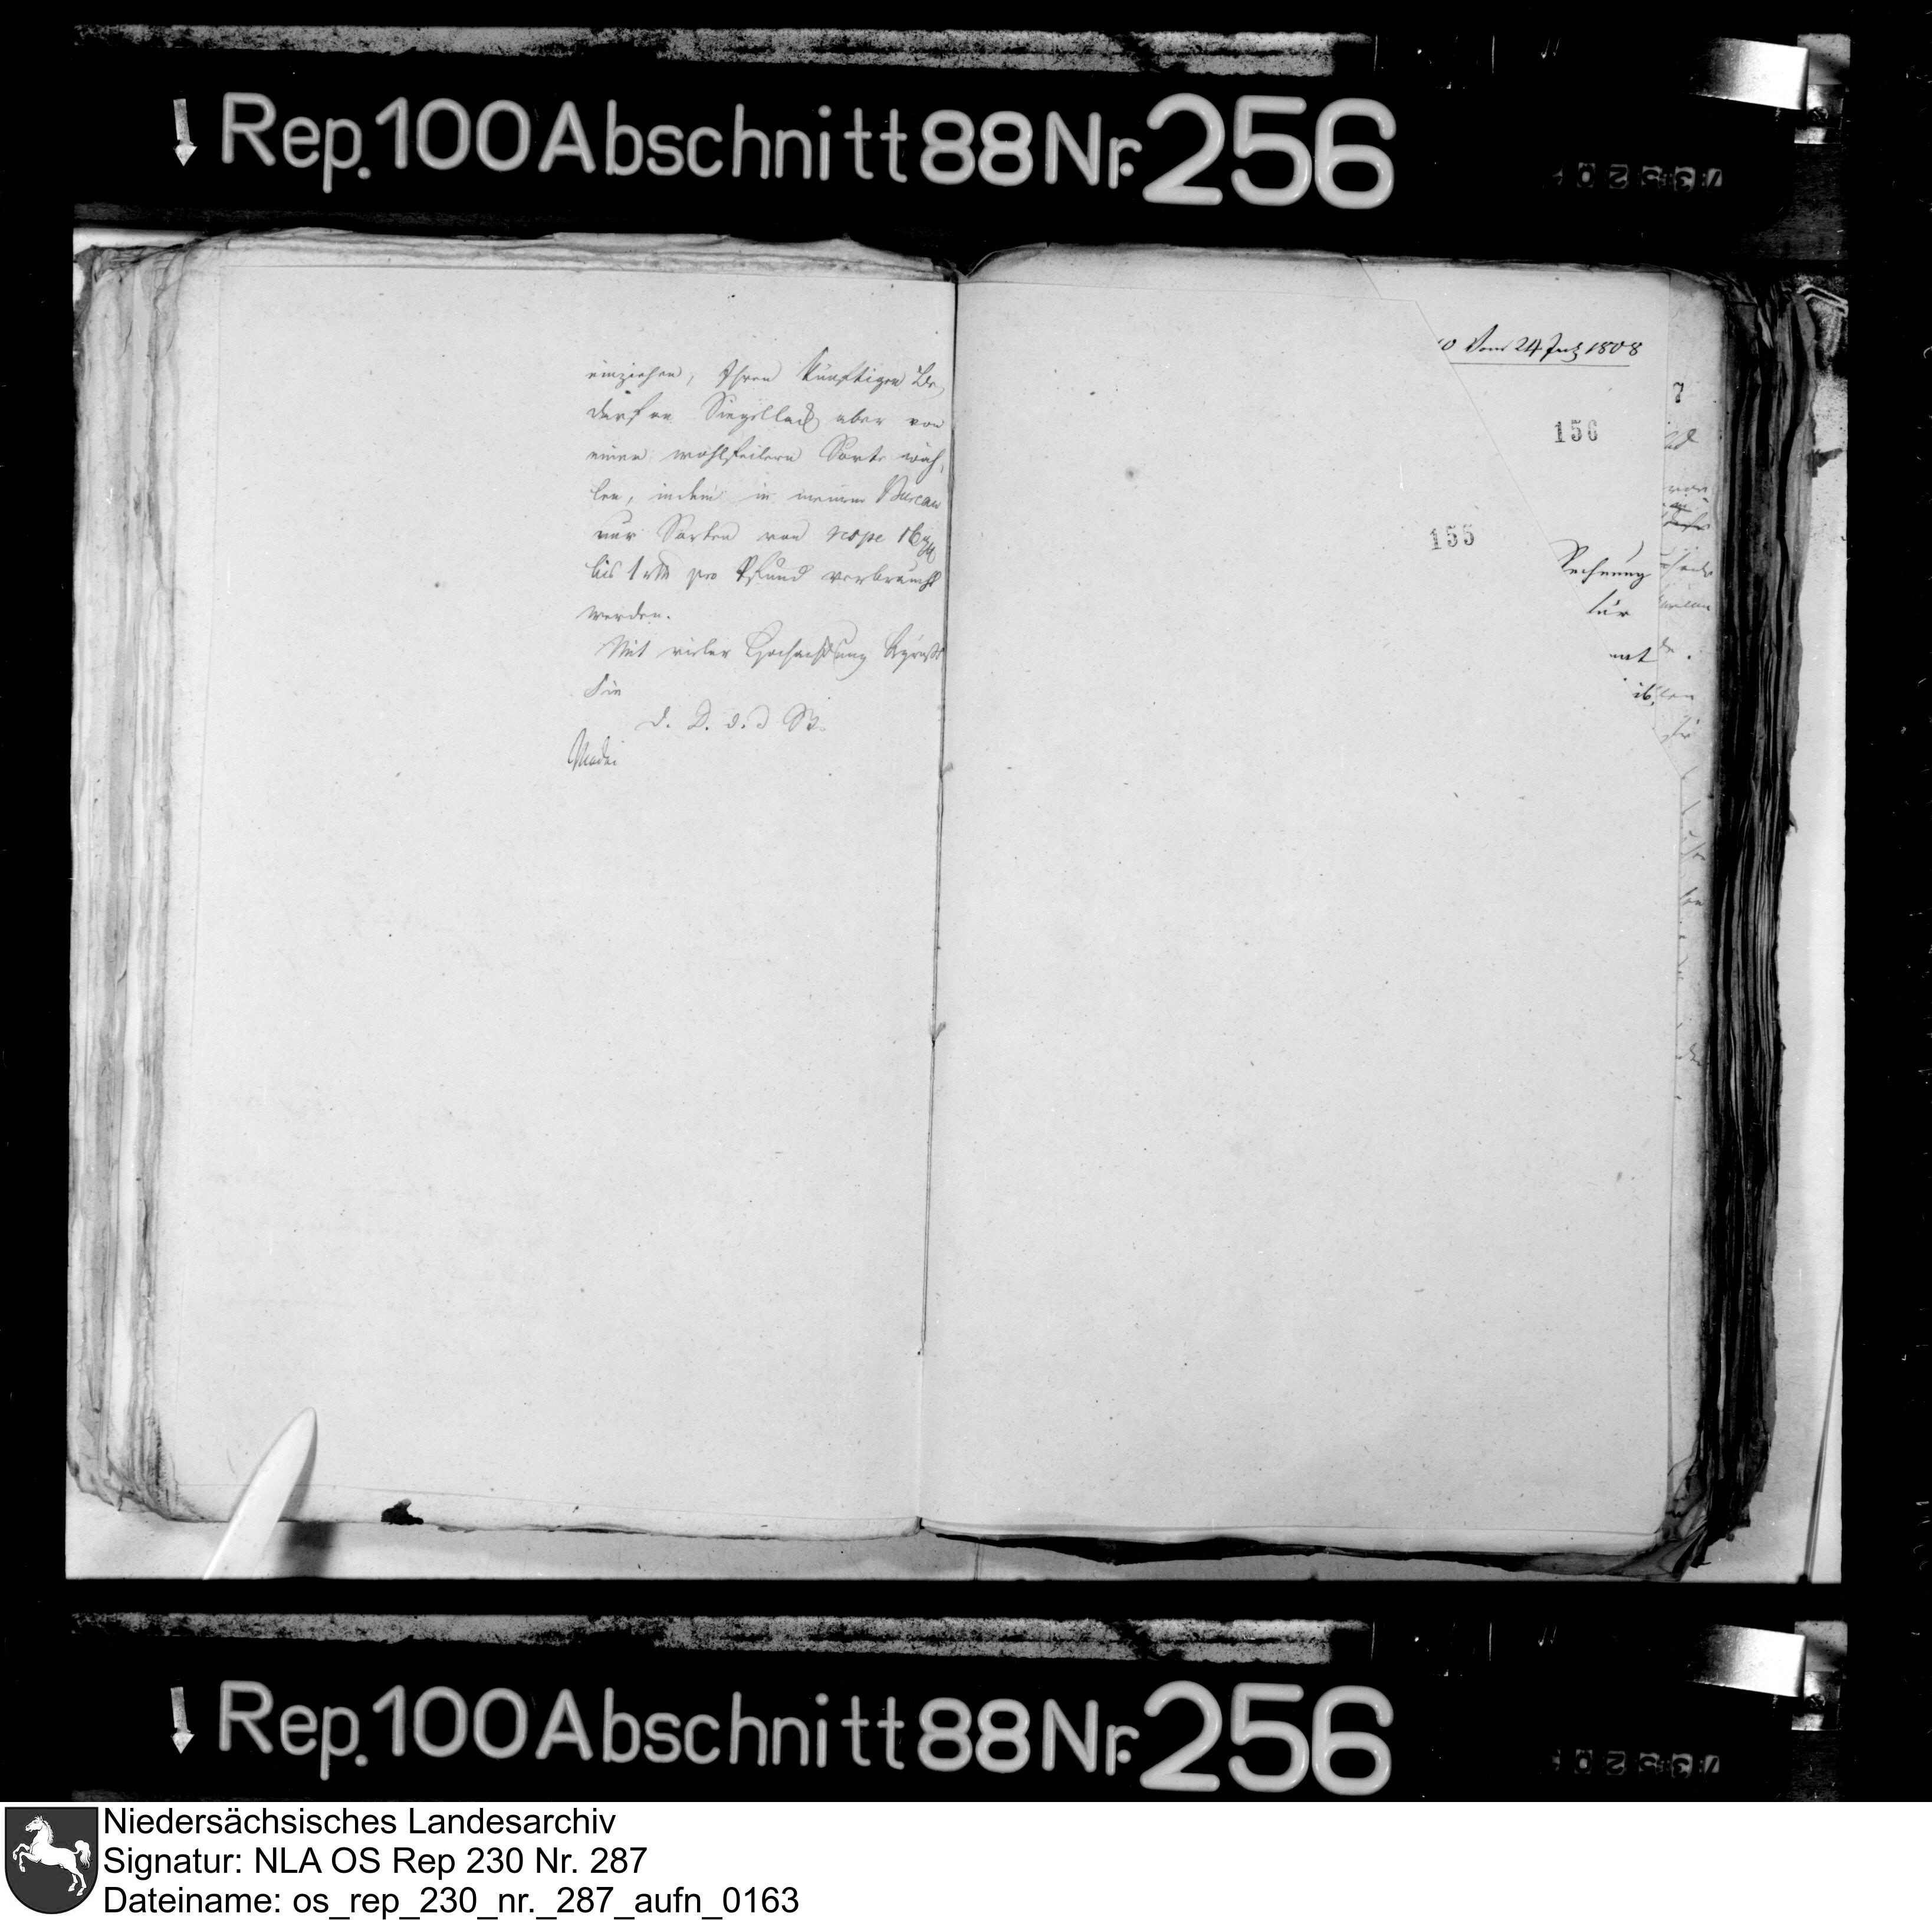 Rep. 100 Abschnitt 88 Nr. 256
einziehen, Ihren künftigen Be-
darf an Siegellack aber von
einer wohlfeilern Sorte wäh-
len, indem in meinem Bureau
nur Sorten von respe 16 ggr
bis 1 rthl pro Pfund verbraucht
werden.
Mit vieler Hochachtung
Sie
d. D. d. d
Vom 24 July 1808
156
155
Rechnung
für
Rep. 100 Abschnitt 88 Nr. 256
Niedersächsisches Landesarchiv
Signatur: NLA OS Rep 230 Nr. 287
Dateiname: os_rep_230_nr._287_aufn_0163